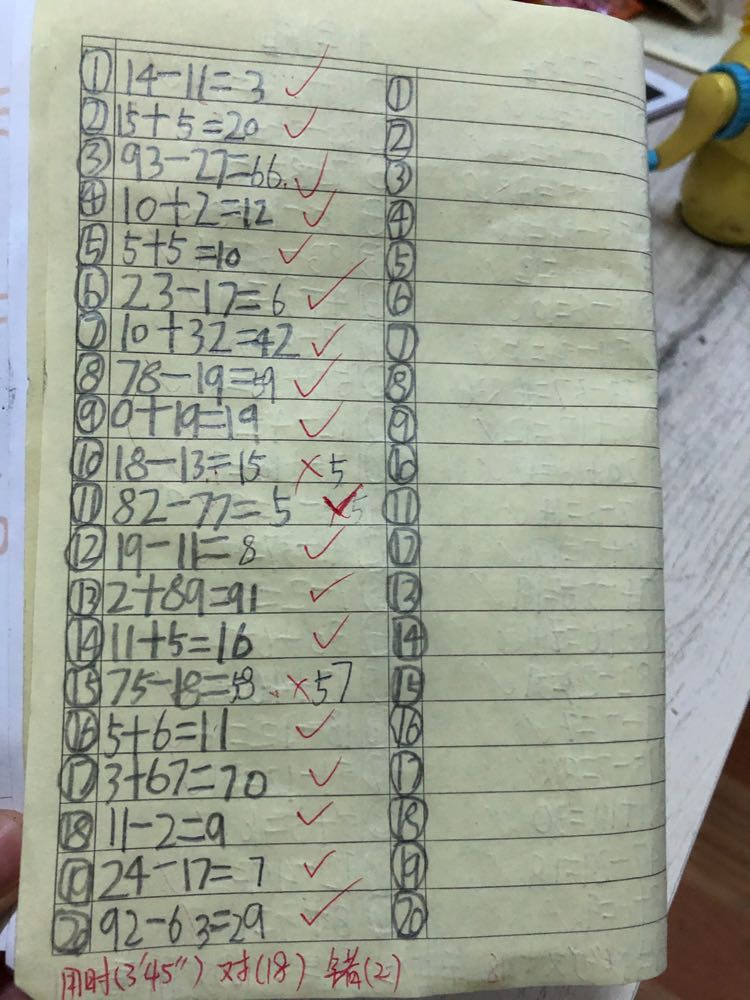 ① 14-11=3 ✓ ①
② 15+5=20 ✓ ②
③ 93-27=66. ✓ ③
④ 10+2=12 ✓ ④
⑤ 5+5=10 ✓ ⑤
⑥ 23-17=6 ✓ ⑥
⑦ 10+32=42 ✓ ⑦
⑧ 78-19=59 ✓ ⑧
⑨ 0+19=19 ✓ ⑨
⑩ 18-13=15 ×5 ⑩
⑪ 82-77=5 ✓5 ⑪
⑫ 19-11=8 ✓ ⑫
⑬ 2+89=91 ✓ ⑬
⑭ 11+5=16 ✓ ⑭
⑮ 75-18=58 ×57 ⑮
⑯ 5+6=11 ✓ ⑯
⑰ 3+67=70 ✓ ⑰
⑱ 11-2=9 ✓ ⑱
⑲ 24-17=7 ✓ ⑲
⑳ 92-63=29 ✓ ⑳
用时(3'45") 对(18) 错(2)